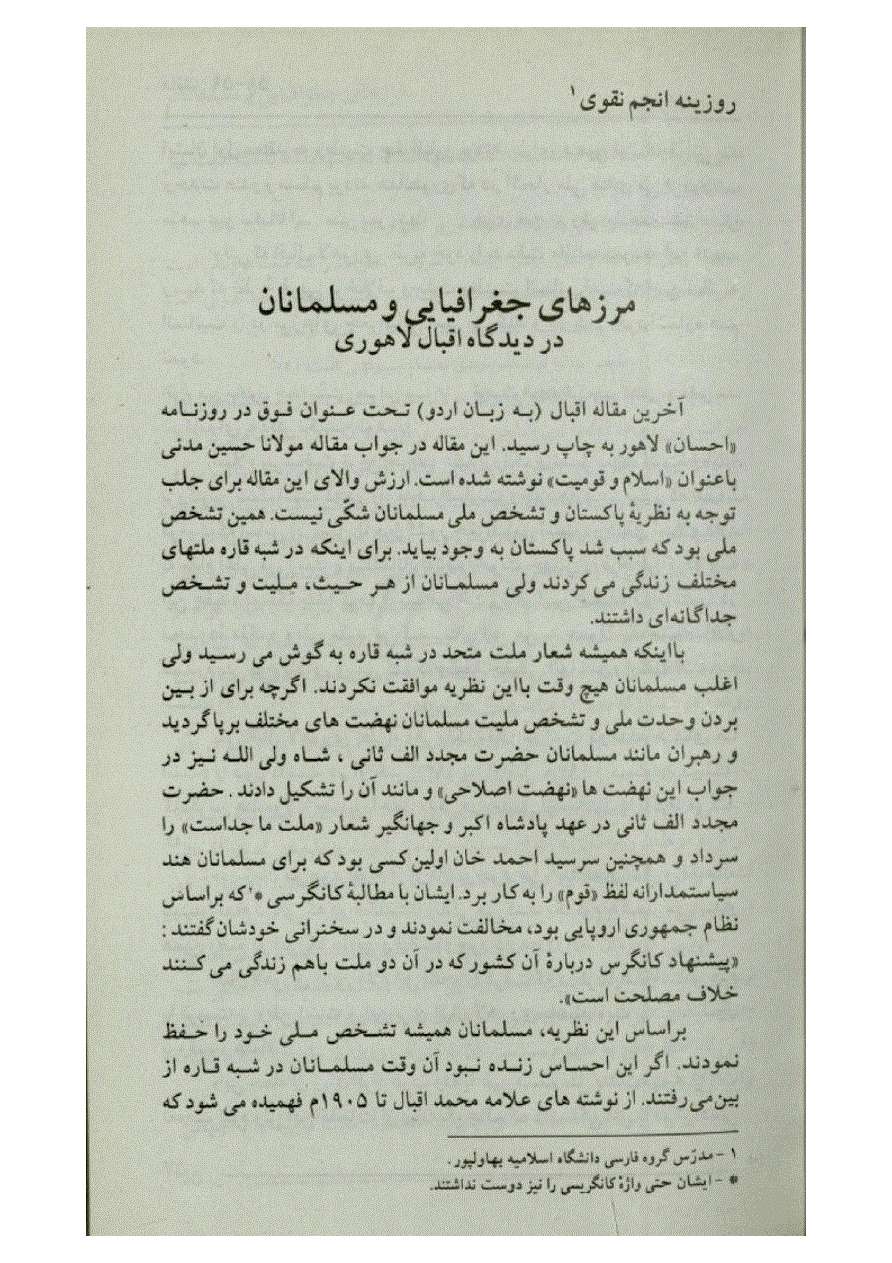 روزینه انجم نقوی ۱
مرزهای جغرافیایی و مسلمانان
در دیدگاه اقبال لاهوری
آخرین مقاله اقبال (به زبان اردو) تحت عنوان فوق در روزنامه
«احسان» لاهور به چاپ رسید. این مقاله در جواب مقاله مولانا حسین مدنی
باعنوان «اسلام و قومیت» نوشته شده است. ارزش والای این مقاله برای جلب
توجه به نظریهٔ پاکستان و تشخص ملی مسلمانان شکّی نیست. همین تشخص
ملی بود که سبب شد پاکستان به وجود بیاید. برای اینکه در شبه قاره ملتهای
مختلف زندگی می کردند ولی مسلمانان از هر حیث، ملیت و تشخص
جداگانه‌ای داشتند.
بااینکه همیشه شعار ملت متحد در شبه قاره به گوش می رسید ولی
اغلب مسلمانان هیچ وقت بااین نظریه موافقت نکردند. اگرچه برای از بین
بردن وحدت ملی و تشخص ملیت مسلمانان نهضت های مختلف برپاگردید
و رهبران مانند مسلمانان حضرت مجدد الف ثانی ، شاه ولی الله نیز در
جواب این نهضت ها «نهضت اصلاحی» و مانند آن را تشکیل دادند . حضرت
مجدد الف ثانی در عهد پادشاه اکبر و جهانگیر شعار «ملت ما جداست» را
سرداد و همچنین سرسید احمد خان اولین کسی بود که برای مسلمانان هند
سیاستمدارانه لفظ «قوم» را به کار برد. ایشان با مطالبهٔ کانگرسی *' که براساس
نظام جمهوری اروپایی بود، مخالفت نمودند و در سخنرانی خودشان گفتند :
«پیشنهاد کانگرس دربارهٔ آن کشور که در آن دو ملت باهم زندگی می کنند
خلاف مصلحت است».
براساس این نظریه، مسلمانان همیشه تشخص ملی خود را حفظ
نمودند. اگر این احساس زنده نبود آن وقت مسلمانان در شبه قاره از
بین می رفتند. از نوشته های علامه محمد اقبال تا ۱۹۰۵م فهمیده می شود که
۱ - مدرّس گروه فارسی دانشگاه اسلامیه بهاولپور.
* - ایشان حتی واژهٔ کانگریسی را نیز دوست نداشتند.